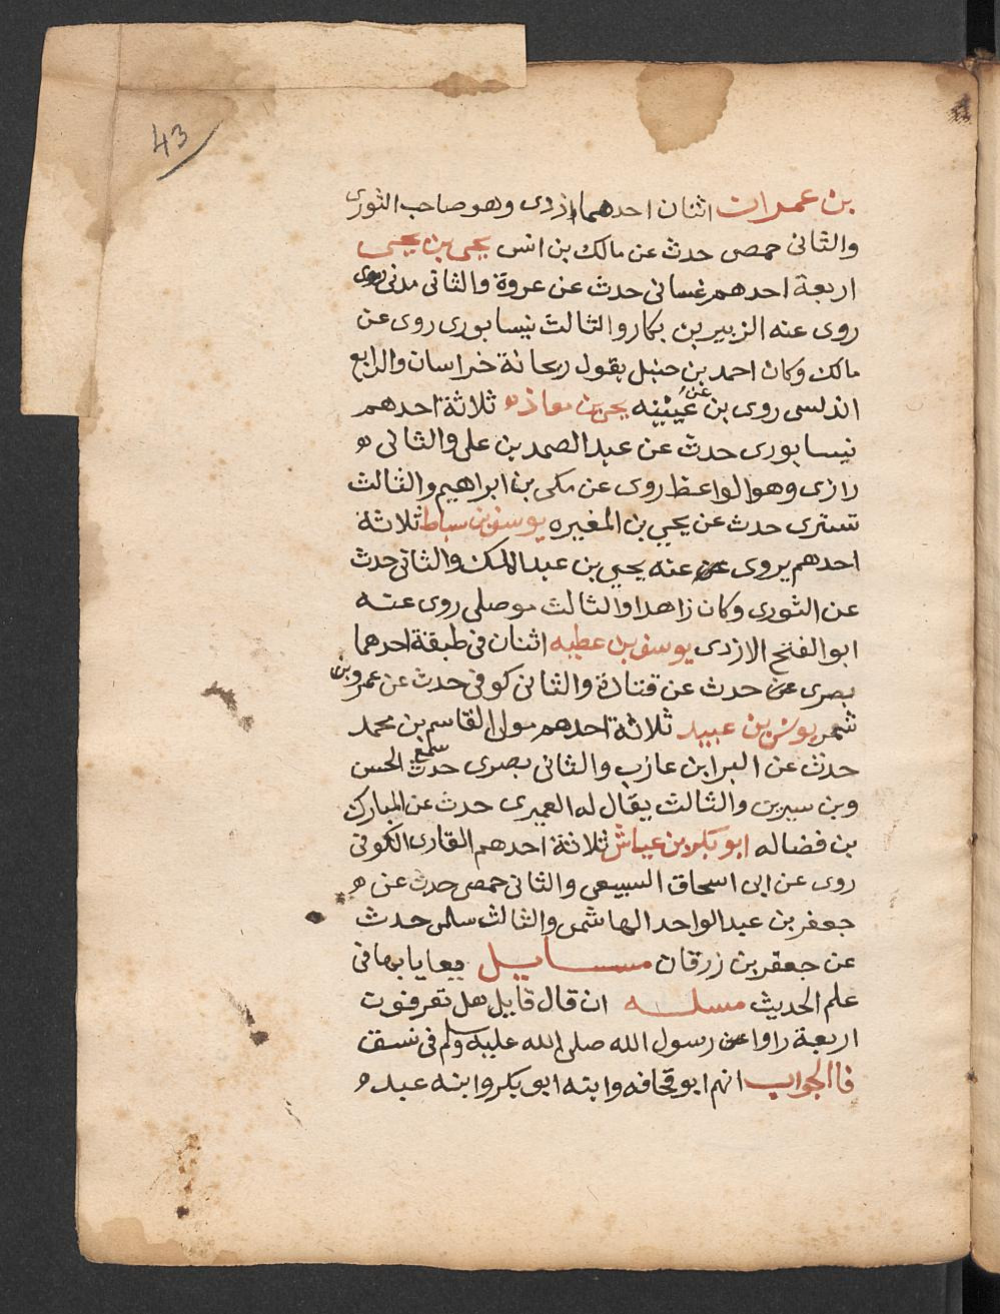 43
بن عمران اثنان احدهما ازدى وهو صاحب الثورى
والثانى حمصى حدث عن مالك بن انس يحيى بن يحيى
اربعة احدهم غسانى حدث عن عروة والثانى مدنى
روى عنه الزبير بن بكار والثالث نيسابورى روى عن
مالك وكان احمد بن حنبل يقول ريحانة خراسان والرابع
اندلسى روى عن بن عيينه يحيى بن معاذ ثلاثة احدهم
نيسابورى حدث عن عبد الصمد بن على والثانى
رازى وهو الواعظ روى عن مكى بن ابراهيم والثالث
تسترى حدث عن يحيى بن المغيره يوسف بن سباط ثلاثة
احدهم يروى عنه يحيى بن عبد الملك والثانى حدث
عن الثورى وكان زاهدا والثالث موصلى روى عنه
ابو الفتح الازدى يوسف بن عطيه اثنان فى طبقة احدهما
بصرى حدث عن قتادة والثانى كوفى حدث عن عمرو بن
شمر يونس بن عبيد ثلاثة احدهم مولى القاسم بن محمد
حدث عن البرا ابن عازب والثانى بصرى حدث سمع الحسن
وبن سيرين والثالث يقال له العميرى حدث عن المبارك
بن فضاله ابو بكر بن عياش ثلاثة احدهم القارى الكوفى
روى عن ابى اسحاق السبيعى والثانى حمصى حدث عن
جعفر بن عبد الواحد الهاشمى والثالث سلمى حدث
عن جعفر بن زرقان مسايل يعايا بها فى
علم الحديث مسله ان قال قايل هل تعرفون
اربعة راوا عن رسول الله صلى الله عليه وسلم فى نسق
فاالجواب انهم ابو قحافه وابنه ابو بكر وابنه عبد